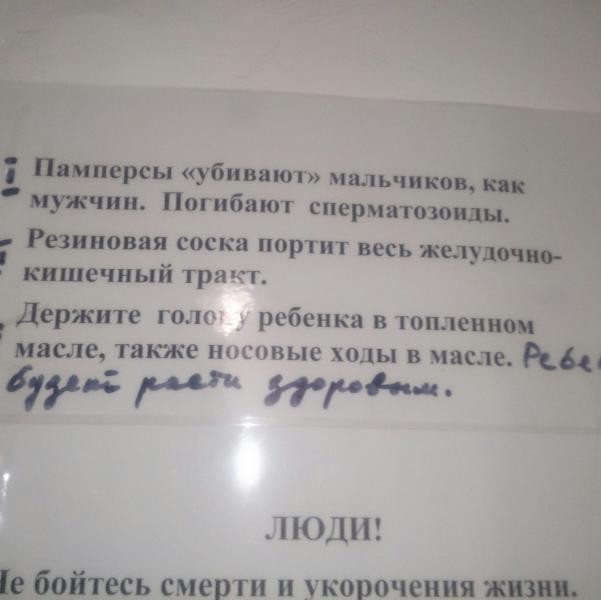 Памперсы «убивают» мальчиков, как
мужчин. Погибают сперматозоиды.
Резиновая соска портит весь желудочно-
кишечный тракт.
Держите голову ребенка в топленном
масле, также носовые ходы в масле. Ребе
будет расти здоровым.
ЛЮДИ!
Не бойтесь смерти и укорочения жизни.